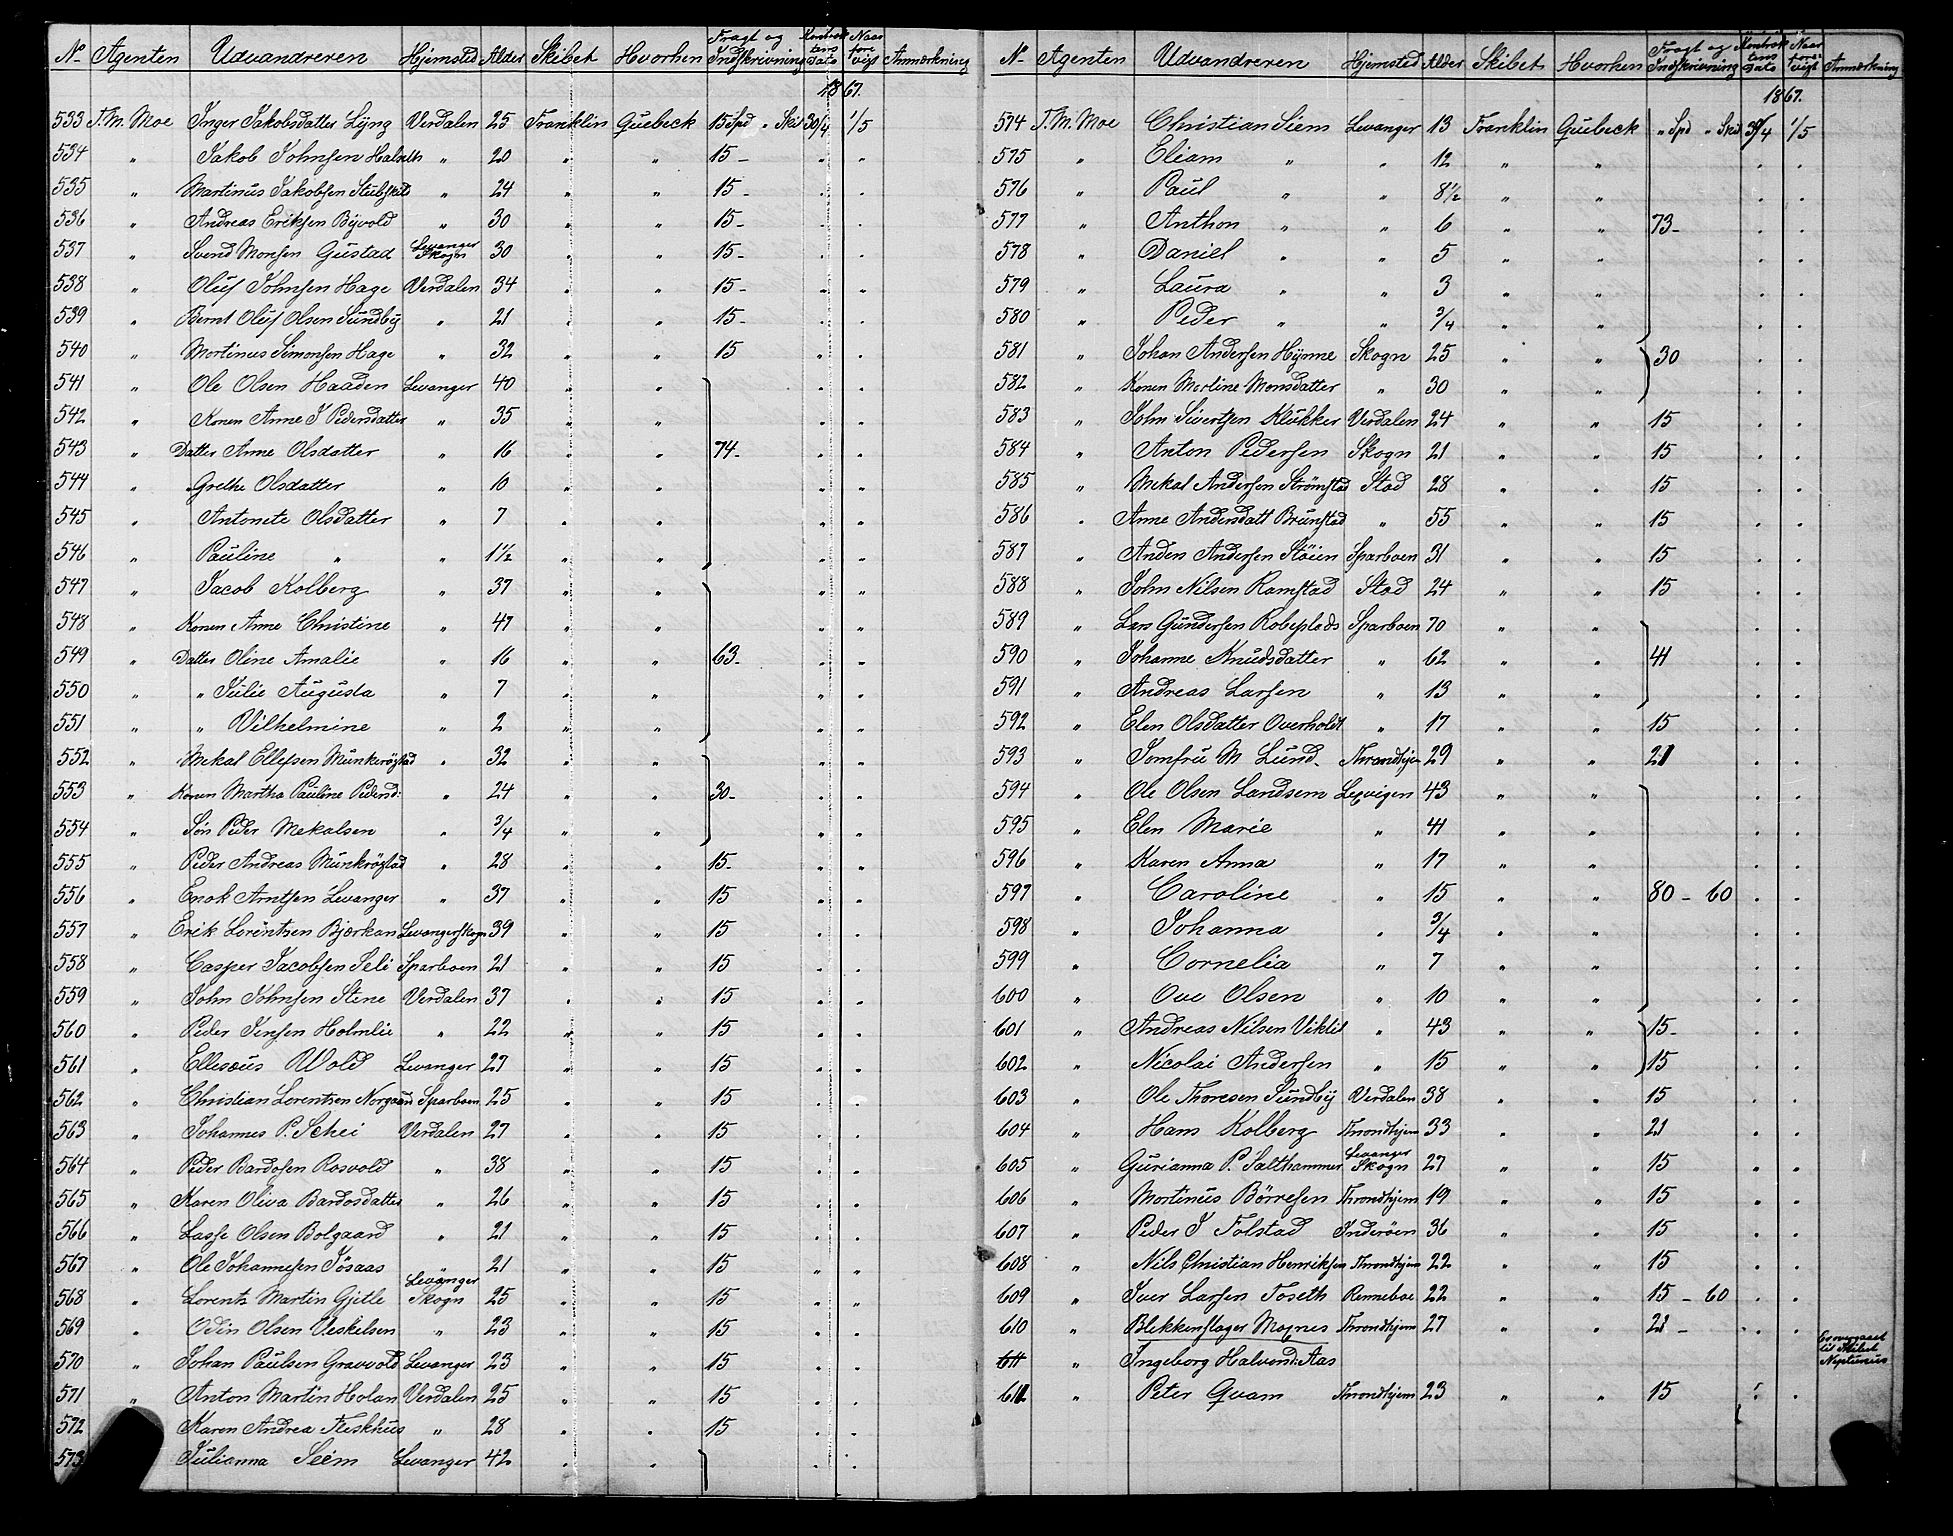 No Agenten Udvandreren Hjemsted Alder Skibet Hvorhen Fragt og Indskrivning Kontraktens Dato Naar forevist Anmærkning
1867.
533 T. M. Moe Inger Jakobsdatter Lyng Verdalen 25 Franklin Quebeck 15 Spd " Skil 30/4 1/5
534 " Jakob Johnsen Halseth " 20 " " 15 - " "
535 " Martinus Jakobsen Stubskits " 24 " " 15 - " "
536 " Andreas Eriksen Byvold " 30 " " 15 - " "
537 " Svend Monsen Gustad Levanger Skogn 30 " " 15 - " "
538 " Oluf Johnsen Hage Verdalen 34 " " 15 - " "
539 " Bernt Oluf Olsen Sundby " 21 " " 15 - " "
540 " Martinus Simonsen Hage " 32 " " 15 " "
541 " Ole Olsen Haaden Levanger 40 " " " "
542 " Konen Anne J Pedersdatter " 35 " " " "
543 " Datter Anne Olsdatter " 16 " " 74 - " "
544 " Grethe Olsdatter " 10 " " " "
545 " Antonete Olsdatter " 7 " " " "
546 " Pauline " " 1½ " " " "
547 " Jacob Kolberg " 37 " " " "
548 " Konen Anne Christine " 47 " " " "
549 " Datter Oline Amalie " 16 " " 63 - " "
550 " " Julie Augusta " 7 " " " "
551 " " Vilhelmine " 2 " " " "
552 " Mekal Ellefsen Munkerøstad " 32 " " " "
553 " Konen Martha Pauline Pedersd: " 24 " " 30 - " "
554 " Søn Peder Mekalsen " 3/4 " " " "
555 " Peder Andreas Munkrøstad " 28 " " 15 - " "
556 " Enok Arntsen Levanger " 37 " " 15 " "
557 " Erik Lorentsen Bjørkan Levangerskogn 39 " " 15 " "
558 " Casper Jacobsen Seli Sparboen 21 " " 15 " "
559 " John Johnsen Stene Verdalen 37 " " 15 " "
560 " Peder Jensen Holmlie " 22 " " 15 " "
561 " Ellisæus Wold Levanger 27 " " 15 " "
562 " Christian Lorentsen Norgaard Sparboen 25 " " 15 " "
563 " Johannes P. Schei Verdalen 27 " " 15 " "
564 " Peder Bardosen Rosvold " 38 " " 15 " "
565 " Karen Oliva Bardosdatter " 26 " " 15 " "
566 " Lasse Olsen Bolgaard " 21 " " 15 " "
567 " Ole Johannesen Jøsaas " 21 " " 15 " "
568 " Lorents Martin Gjetle Levanger Skogn 25 " " 15 " "
569 " Odin Olsen Veskelsen " 23 " " 15 " "
570 " Johan Paulsen Gravvold Levanger 23 " " 15 " "
571 " Anton Martin Holan Verdalen 25 " " 15 " "
572 " Karen Andrea Fleskhus " 28 " " 15 " "
573 Julianna Seem Levanger 42 " " " "
No Agenten Udvandreren Hjemsted Alder Skibet Hvorhen Fragt og Indskrivning Kontraktens Dato Naar forevist Anmærkning
1867.
574 T. M. Moe Christian Siem Levanger 13 Franklin Quebeck " Spd " Skil 30/4 1/5
575 " Eliam " " 12 " " " "
576 " Paul " " 8½ " " " "
577 " Anthon " " 6 " " 73 - " "
578 " Daniel " " 5 " " " "
579 " Laura " " 3 " " " "
580 " Peder " " 3/4 " " " "
581 " Johan Andersen Hynne Skogn 25 " " 30 " "
582 " Konen Merline Monsdatter " 30 " " " "
583 " John Sivertsen Klukker Verdalen 24 " " 15 " "
584 " Anton Pedersen Skogn 21 " " 15 " "
585 " Mekal Andersen Strømstad Stod 28 " " 15 " "
586 " Anne Andersdatt Brunstad " 55 " " 15 " "
587 " Anders Andersen Støien Sparboen 31 " " 15 " "
588 " John Nilsen Ramstad Stod 24 " " 15 " "
589 " Lars Gundersen Robesplads Sparboen 70 " " " "
590 " Johanne Knudsdatter " 62 " " 41 " "
591 " Andreas Larsen " 13 " " " "
592 " Elen Olsdatter Overholdt " 17 " " 15 " "
593 " Jomfru M Lund Throndhjem 29 " " 21 " "
594 " Ole Olsen Landsem Lexvigen 43 " " " "
595 " Elen Marie " 41 " " " "
596 " Karen Anna " 17 " " " "
597 " Caroline " 15 " " 80 - 60 " "
598 " Johanna " 3/4 " " " "
599 " Cornelia " 7 " " " "
600 " Ove Olsen " 10 " " " "
601 " Andreas Nilsen Viktil " 43 " " 15 - " "
602 " Nicolai Andersen " 15 " " 15 " "
603 " Ole Thoresen Sundby Verdalen 38 " " 15 " "
604 " Hans Kolberg Throndhjem 33 " " 21 " "
605 " Gurianna P. Salthammer Levanger Skogn 27 " " 15 " "
606 " Martinus Børresen Throndhjem 19 " " 15 " "
607 " Peder J Folstad Inderøen 36 " " 15 " "
608 " Nils Christian Henriksen Throndhjem 22 " " 15 " "
609 " Iver Larsen Foseth Renneboe 22 " " 15 - 60 " "
610 " Blikkenslager Magnes Throndhjem 27 " " 21 - " "
611 " Ingeborg Halvend: Aas Er overgaaet til Skibet Neptunus
611 " Peter Quam Throndhjem 23 " " 15 " "